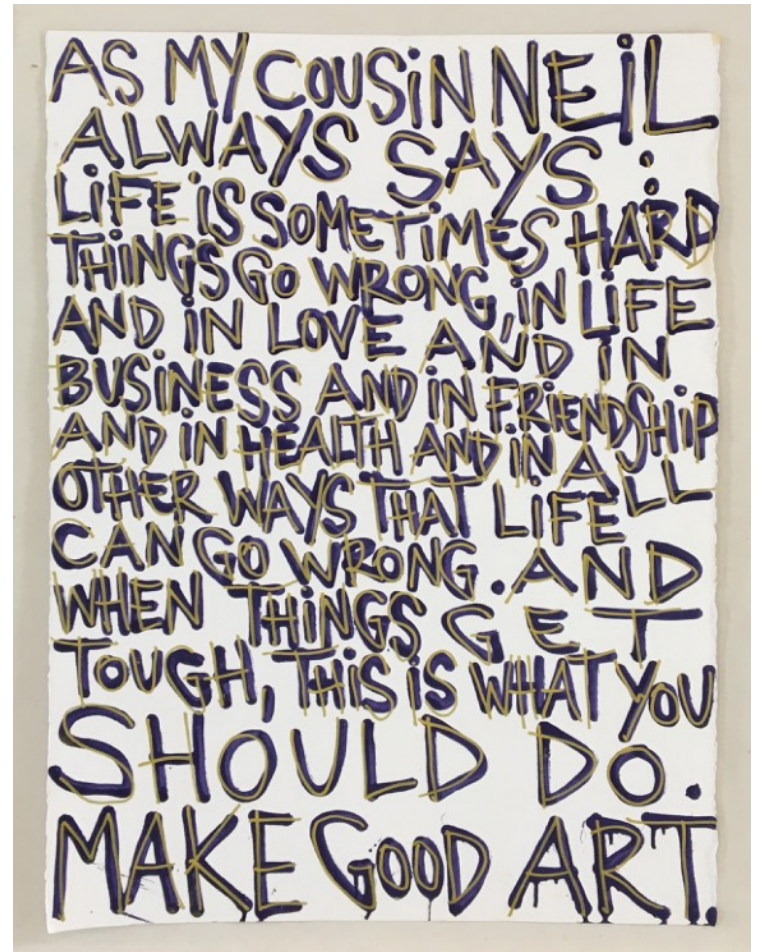 AS MY COUSiN NEiL
ALWAYS SAYS :
LiFE iS SOMETiMES HARD
THiNGS GO WRONG, iN LiFE
AND iN LOVE AND iN
BUSiNESS AND iN FRiENDSHiP
AND iN HEALTH AND iN ALL
OTHER WAYS THAT LiFE
CAN GO WRONG. AND
WHEN THiNGS GET
TOUGH, THiS iS WHAT YOU
SHOULD DO.
MAKE GOOD ART.